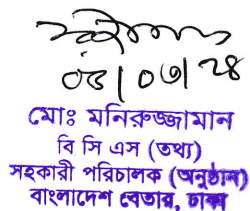 ০৫/০৩/২৪
মোঃ মনিরুজ্জামান
বি সি এস (তথ্য)
সহকারী পরিচালক (অনুষ্ঠান)
বাংলাদেশ বেতার, ঢাকা